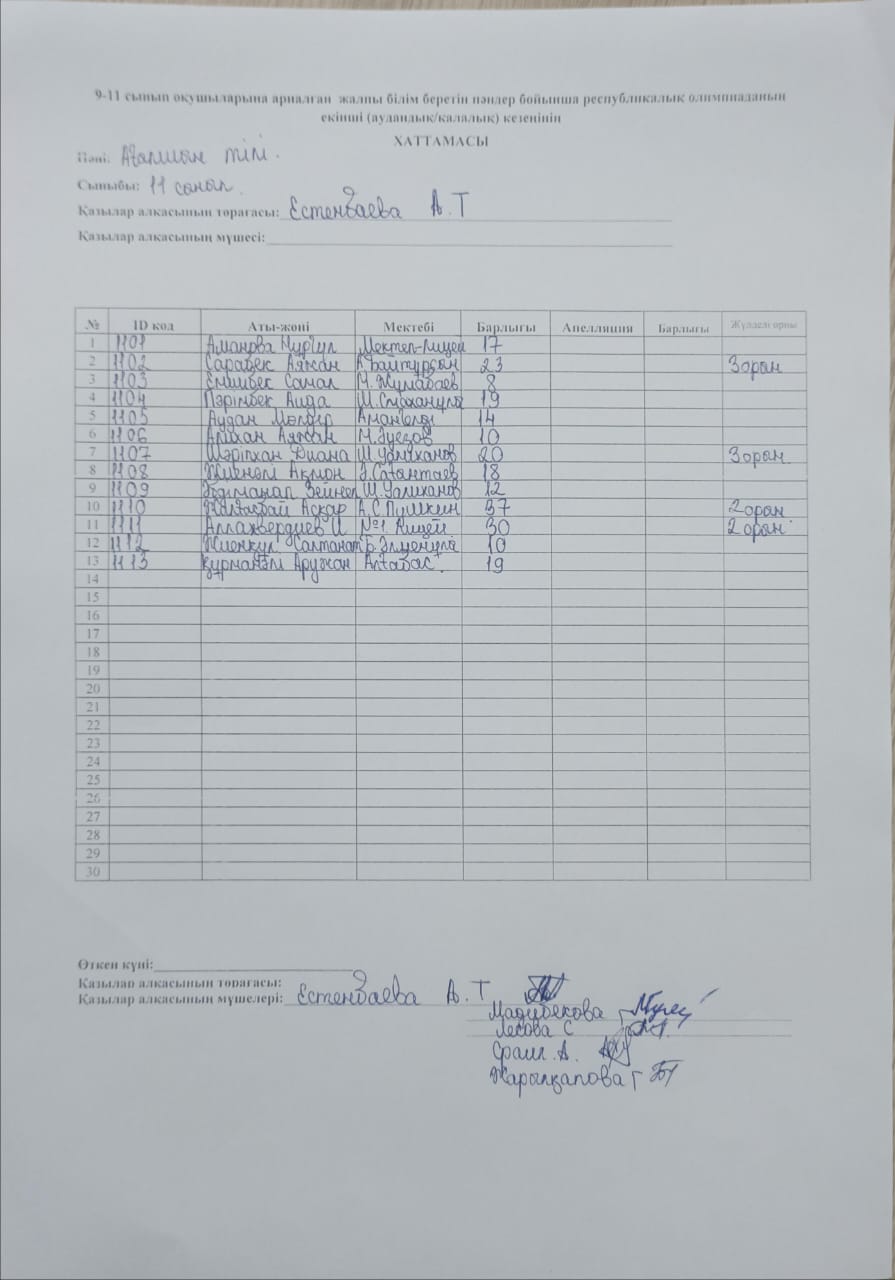 9-11 сынып оқушыларына арналған жалпы білім беретін пәндер бойынша республикалық олимпиаданың
екінші (аудандық/қалалық) кезеңінің
ХАТТАМАСЫ
Пәні: Ағылшын тілі.
Сыныбы: 11 сынып.
Қазылар алқасының төрағасы: Естенбаева А.Т
Қазылар алқасының мүшесі:
№ ID код Аты-жөні Мектебі Барлығы Апелляция Барлығы Жүлделі орны
1 1101 Аманова Нургул Мектеп-Лицей 17
2 1102 Сарабек Аяжан А.Байтұрсын 23 3 орын
3 1103 Еңлікбек Санал М.Жұмабаев 8
4 1104 Пәрімбек Аида Ш.Смаханұлы 19
5 1105 Аудан Мөлдір Амангелді 14
6 1106 Алихан Аяжан М.Әуезов 10
7 1107 Шәріпхан Диана Ш.Уәлиханов 20 3 орын
8 1108 Жиенәлі Ақмон Ә.Сағантаев 18
9 1109 Әбдіманап Зейнеп Ш.Уалиханов 12
10 1110 Жалғасбай Асқар А.С.Пушкин 37 2 орын
11 1111 Аллахвердиев И №1 Лицей 30 2 орын
12 1112 Жиенкул Салтанат 10
13 1113 Құрманәлі Аружан Алғабас 19
14
15
16
17
18
19
20
21
22
23
24
25
26
27
28
29
30
Өткен күні:
Қазылар алқасының төрағасы:
Қазылар алқасының мүшелері: Естенбаева А.Т
Мадибекова Г
Лесова С
А.
Жарылқапова Г